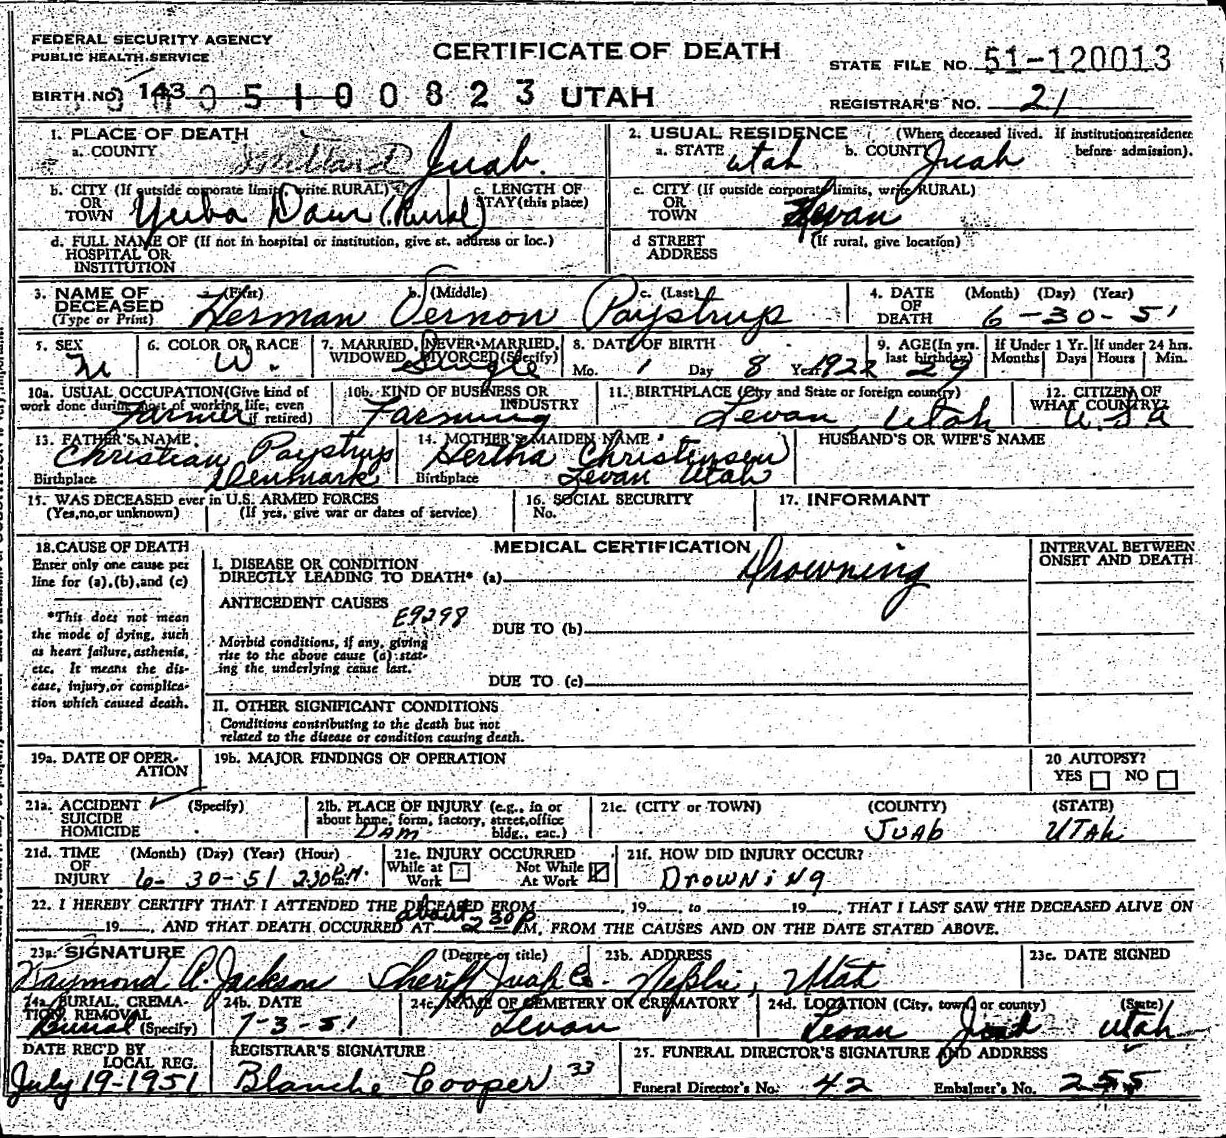 FEDERAL SECURITY AGENCY
PUBLIC HEALTH SERVICE
CERTIFICATE OF DEATH
STATE FILE NO. 51-120013
BIRTH NO. 143 0 5 1 0 0 8 2 3 UTAH
REGISTRAR'S NO. 21
1. PLACE OF DEATH
a. COUNTY Millard Juab.
2. USUAL RESIDENCE (Where deceased lived. If institution: residence before admission).
a. STATE Utah b. COUNTY Juab
b. CITY (If outside corporate limits, write RURAL)
OR
TOWN Yuba Dam (Rural)
c. LENGTH OF
STAY (this place)
c. CITY (If outside corporate limits, write RURAL)
OR
TOWN Levan
d. FULL NAME OF (If not in hospital or institution, give st. address or loc.)
HOSPITAL OR
INSTITUTION
d STREET (If rural, give location)
ADDRESS
3. NAME OF
DECEASED
(Type or Print)
a. (First) b. (Middle) c. (Last)
Herman Vernon Paystrup
4. DATE (Month) (Day) (Year)
OF
DEATH 6-30-51
5. SEX
M
6. COLOR OR RACE
W.
7. MARRIED, NEVER MARRIED,
WIDOWED, DIVORCED (Specify)
Single
8. DATE OF BIRTH
Mo. 1 Day 8 Year 1922
9. AGE (In yrs.
last birthday)
29
If Under 1 Yr.
Months Days
If under 24 hrs.
Hours Min.
10a. USUAL OCCUPATION (Give kind of
work done during most of working life, even
if retired)
Farmer
10b. KIND OF BUSINESS OR
INDUSTRY
Farming
11. BIRTHPLACE (City and State or foreign country)
Levan, Utah
12. CITIZEN OF
WHAT COUNTRY?
U.S.A
13. FATHER'S NAME
Christian Paystrup
Birthplace Denmark
14. MOTHER'S MAIDEN NAME
Hertha Christensen
Birthplace Levan Utah
HUSBAND'S OR WIFE'S NAME
15. WAS DECEASED ever in U.S. ARMED FORCES
(Yes, no, or unknown) (If yes, give war or dates of service)
16. SOCIAL SECURITY
No.
17. INFORMANT
18. CAUSE OF DEATH
Enter only one cause per
line for (a), (b), and (c)
*This does not mean
the mode of dying, such
as heart failure, asthenia,
etc. It means the dis-
ease, injury, or complica-
tion which caused death.
MEDICAL CERTIFICATION
I. DISEASE OR CONDITION
DIRECTLY LEADING TO DEATH* (a) Drowning
ANTECEDENT CAUSES
E9298
DUE TO (b)
Morbid conditions, if any, giving
rise to the above cause (a) stat-
ing the underlying cause last.
DUE TO (c)
II. OTHER SIGNIFICANT CONDITIONS
Conditions contributing to the death but not
related to the disease or condition causing death.
INTERVAL BETWEEN
ONSET AND DEATH
19a. DATE OF OPER-
ATION
19b. MAJOR FINDINGS OF OPERATION
20 AUTOPSY?
YES NO
21a. ACCIDENT ✓ (Specify)
SUICIDE
HOMICIDE
21b. PLACE OF INJURY (e.g., in or
about home, form, factory, street, office
bldg., eac.)
DAM
21c. (CITY or TOWN) (COUNTY) (STATE)
JUAB UTAH
21d. TIME (Month) (Day) (Year) (Hour)
OF
INJURY 6-30-51 2:30 P.M.
21e. INJURY OCCURRED
While at Work Not While At Work
21f. HOW DID INJURY OCCUR?
DROWNING
22. I HEREBY CERTIFY THAT I ATTENDED THE DECEASED FROM , 19 , to 19 , THAT I LAST SAW THE DECEASED ALIVE ON
19 , AND THAT DEATH OCCURRED AT about 2:30 P M, FROM THE CAUSES AND ON THE DATE STATED ABOVE.
23a. SIGNATURE (Degree or title)
Raymond A. Jackson Sheriff Juab Co.
23b. ADDRESS
Nephi, Utah
23c. DATE SIGNED
24a. BURIAL, CREMA-
TION, REMOVAL
Burial (Specify)
24b. DATE
7-3-51
24c. NAME OF CEMETERY OR CREMATORY
Levan
24d. LOCATION (City, town, or county) (State)
Levan Juab Utah
DATE REC'D BY
LOCAL REG.
July 19-1951
REGISTRAR'S SIGNATURE
Blanche Cooper 33
25. FUNERAL DIRECTOR'S SIGNATURE AND ADDRESS
Funeral Director's No. 42 Embalmer's No. 255